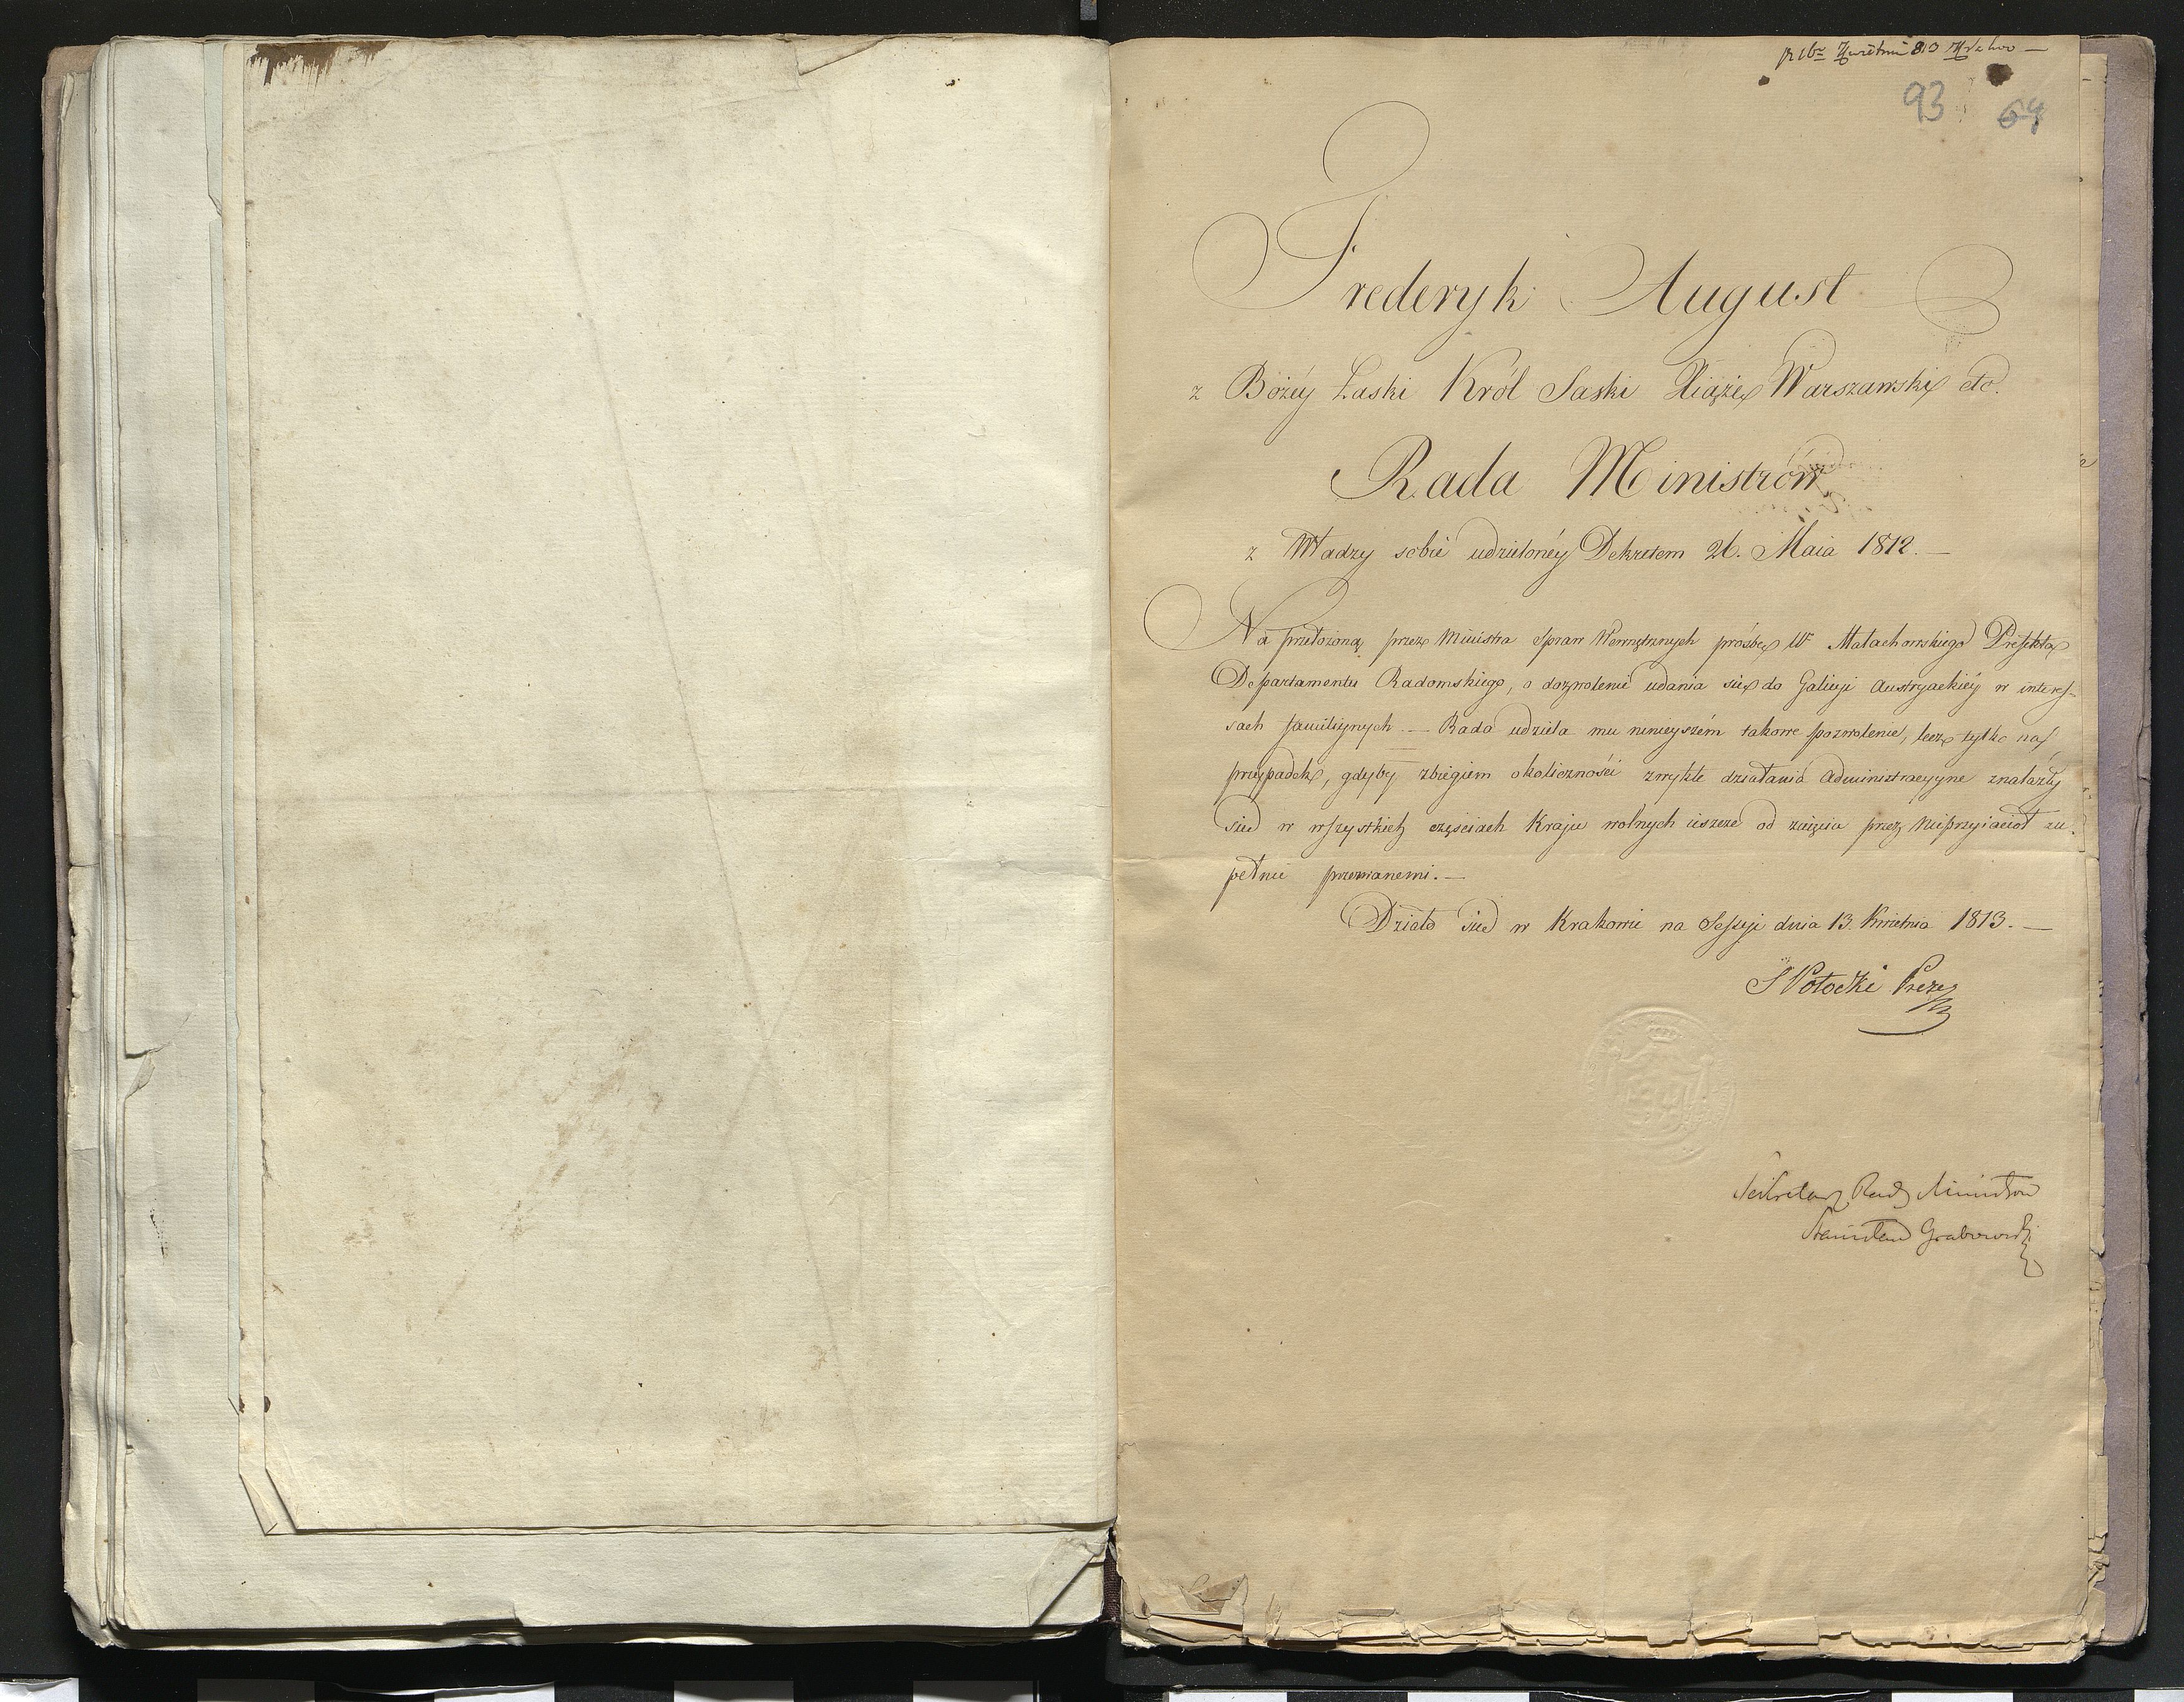 93 64
Frederyk August
z Bożéy Łaski Król Saski Xiąże Warszawski etc.
Rada Ministrów
z Władzy sobie udzielonéy Dekretem 26. Maia 1812. —
Na przełożoną przez Ministra Spraw Wewnętrznych prośbę W. Małachowskiego Prefekta
Departamentu Radomskiego, o dozwolenie udania się do Galicyi Austryackiéy w interes-
sach familiynych. — Rada udziela mu ninieyszém takowe pozwolenie, lecz tylko na
przypadek, gdyby zbiegiem okoliczności zwykłe działania administracyyne znalazły
się w wszystkich częściach Kraju wolnych ieszcze od zaięcia przez Nieprzyiaciół zu-
pełnie przerwanemi. —
Działo się w Krakowie na Sessyi dnia 13. Kwietnia 1813. —
S Potocki Prezes
Sekretarz Rady Ministrow
Stanisław Grabowski